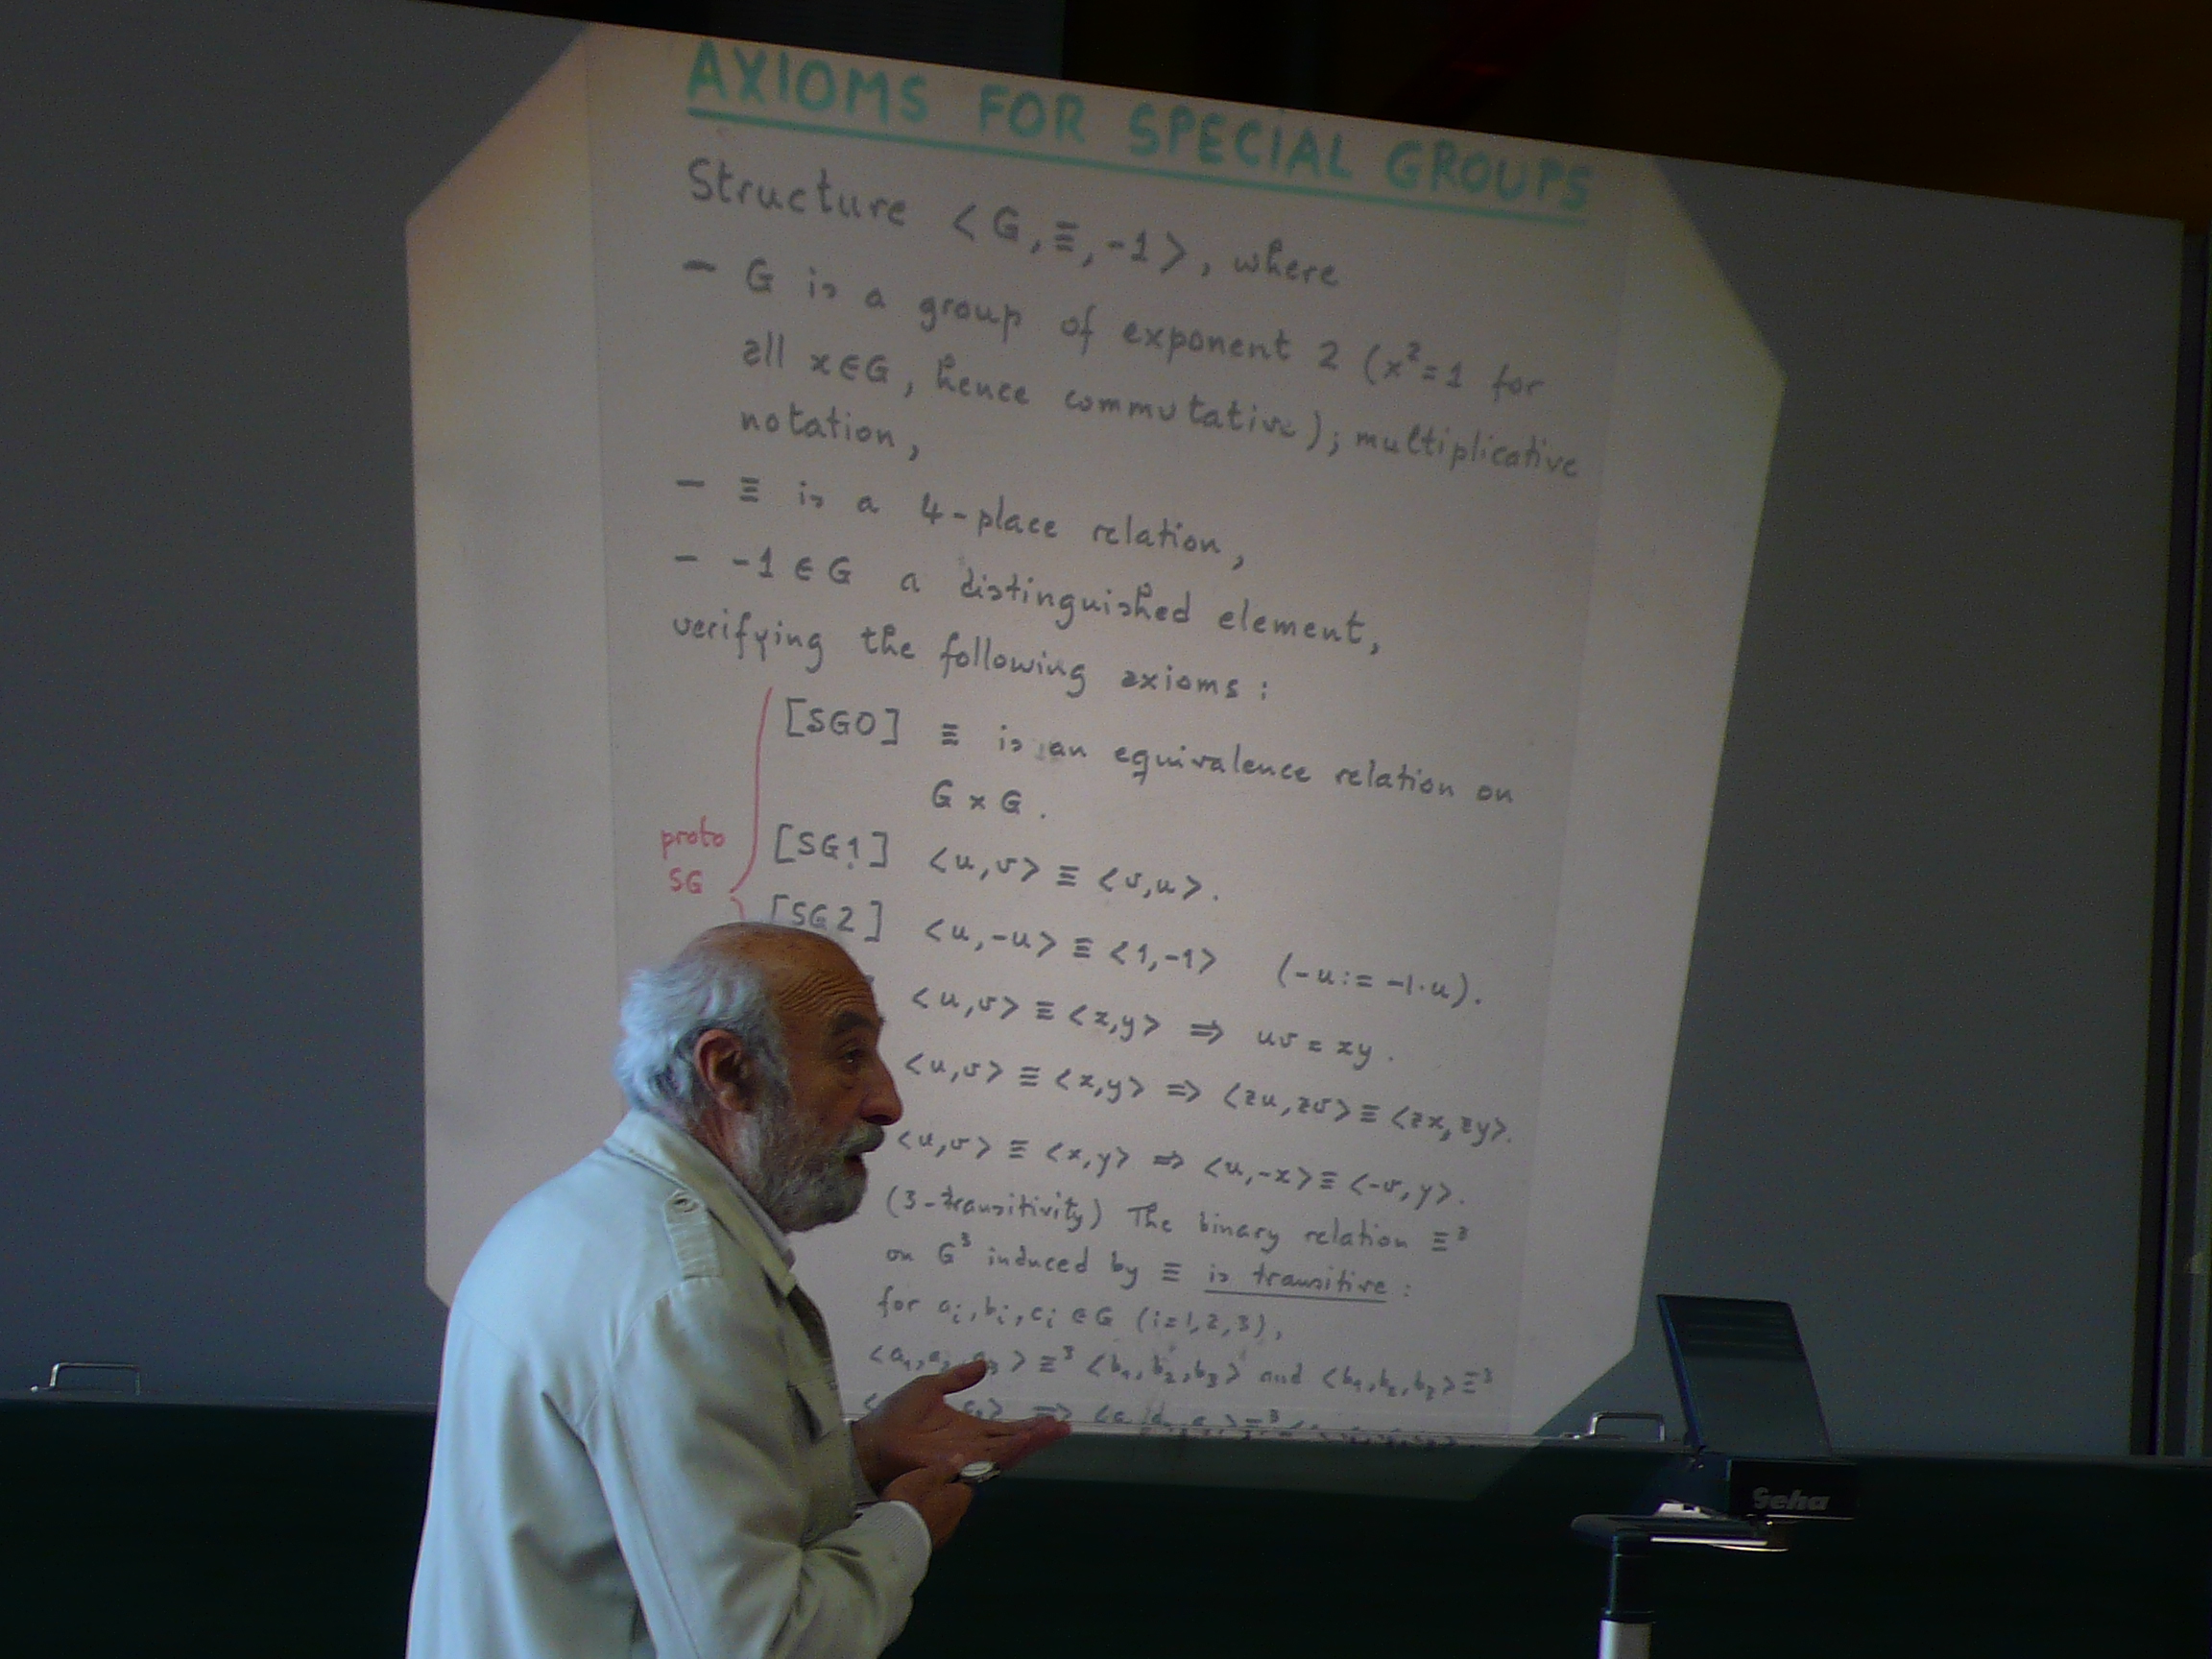 AXIOMS FOR SPECIAL GROUPS
Structure < G, ≡, -1 >, where
- G is a group of exponent 2 (x²=1 for
all x∈G, hence commutative); multiplicative
notation,
- ≡ is a 4-place relation,
- -1 ∈ G a distinguished element,
verifying the following axioms:
[SG0] ≡ is an equivalence relation on
G × G.
proto
SG
[SG1] <u,v> ≡ <v,u>.
[SG2] <u,-u> ≡ <1,-1> (-u := -1·u).
<u,v> ≡ <x,y> ⇒ uv = xy.
<u,v> ≡ <x,y> ⇒ <zu,zv> ≡ <zx,zy>.
<u,v> ≡ <x,y> ⇒ <u,-x> ≡ <-v,y>.
(3-transitivity) The binary relation ≡³
on G³ induced by ≡ is transitive:
for aᵢ,bᵢ,cᵢ ∈ G (i=1,2,3),
<a₁,a₂,a₃> ≡³ <b₁,b₂,b₃> and <b₁,b₂,b₃> ≡³
Geha